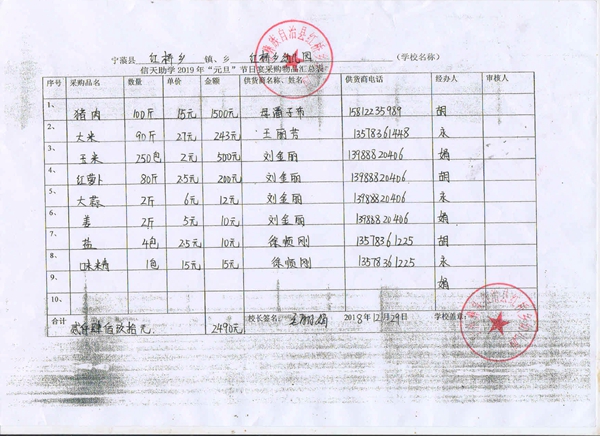 宁蒗县 红桥乡 镇、乡 红桥乡幼儿园 （学校名称）
信天助学2019年“元旦”节日宴采购物品汇总表
序号 采购品名 数量 单价 金额 供货商名称、姓名 供货商电话 经办人 审核人
1、 猪肉 100斤 15元 1500元 15812235989 胡
2、 大米 90斤 2.7元 243元 王丽芳 13578361448 永
3、 玉米 250包 2元 500元 刘金丽 13988820406 娟
4、 红萝卜 80斤 2.5元 200元 刘金丽 13988820406 胡
5、 大蒜 2斤 6元 12元 刘金丽 13988820406 永
6、 姜 2斤 5元 10元 刘金丽 13988820406 娟
7、 盐 4包 2.5元 10元 徐顺刚 13578361225 胡
8、 味精 1包 15元 15元 徐顺刚 13578361225 永
9、 娟
10、
合计 贰仟肆佰玖拾元 2490元 校长签名： 2018年12月29日 学校盖章：